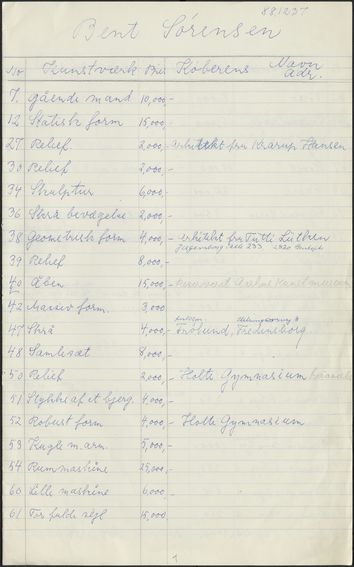 881237
Bent Sørensen
Nr. Kunstværk Pris Køberens Navn
adr.
7. gående mand 10,000,-
12 Statisk form 15,000,-
27 Relief. 2,000,- arkitekt fru Krarup Hansen
30 Relief 2,000,-
34 Skulptur 6,000,-
36 Skrå bevægelse 2,000,-
38 Geometrisk form 4,000,- arkitekt fru Tutti Lütken
39 Relief 8,000,-
40 Åben 15,000,- Aarhus Kunstmuseum
42 Massiv form. 3,000
47 Skrå 4,000,- Frølund, Fredensborg
48 Samlesæt 8,000,-
50 Relief 2,000,- Holte Gymnasium
51 Stykke af et bjerg. 4,000,-
52 Robust form 4,000,- Holte Gymnasium
53 Kugle m. arm. 5,000,-
54 Rummaskine 25,000,-
60 Lille maskine 6,000,-
61 For fulde sejl 15,000